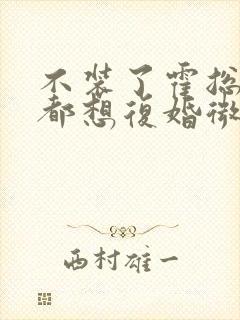 不装了霍总
都想復婚微
西村雄一